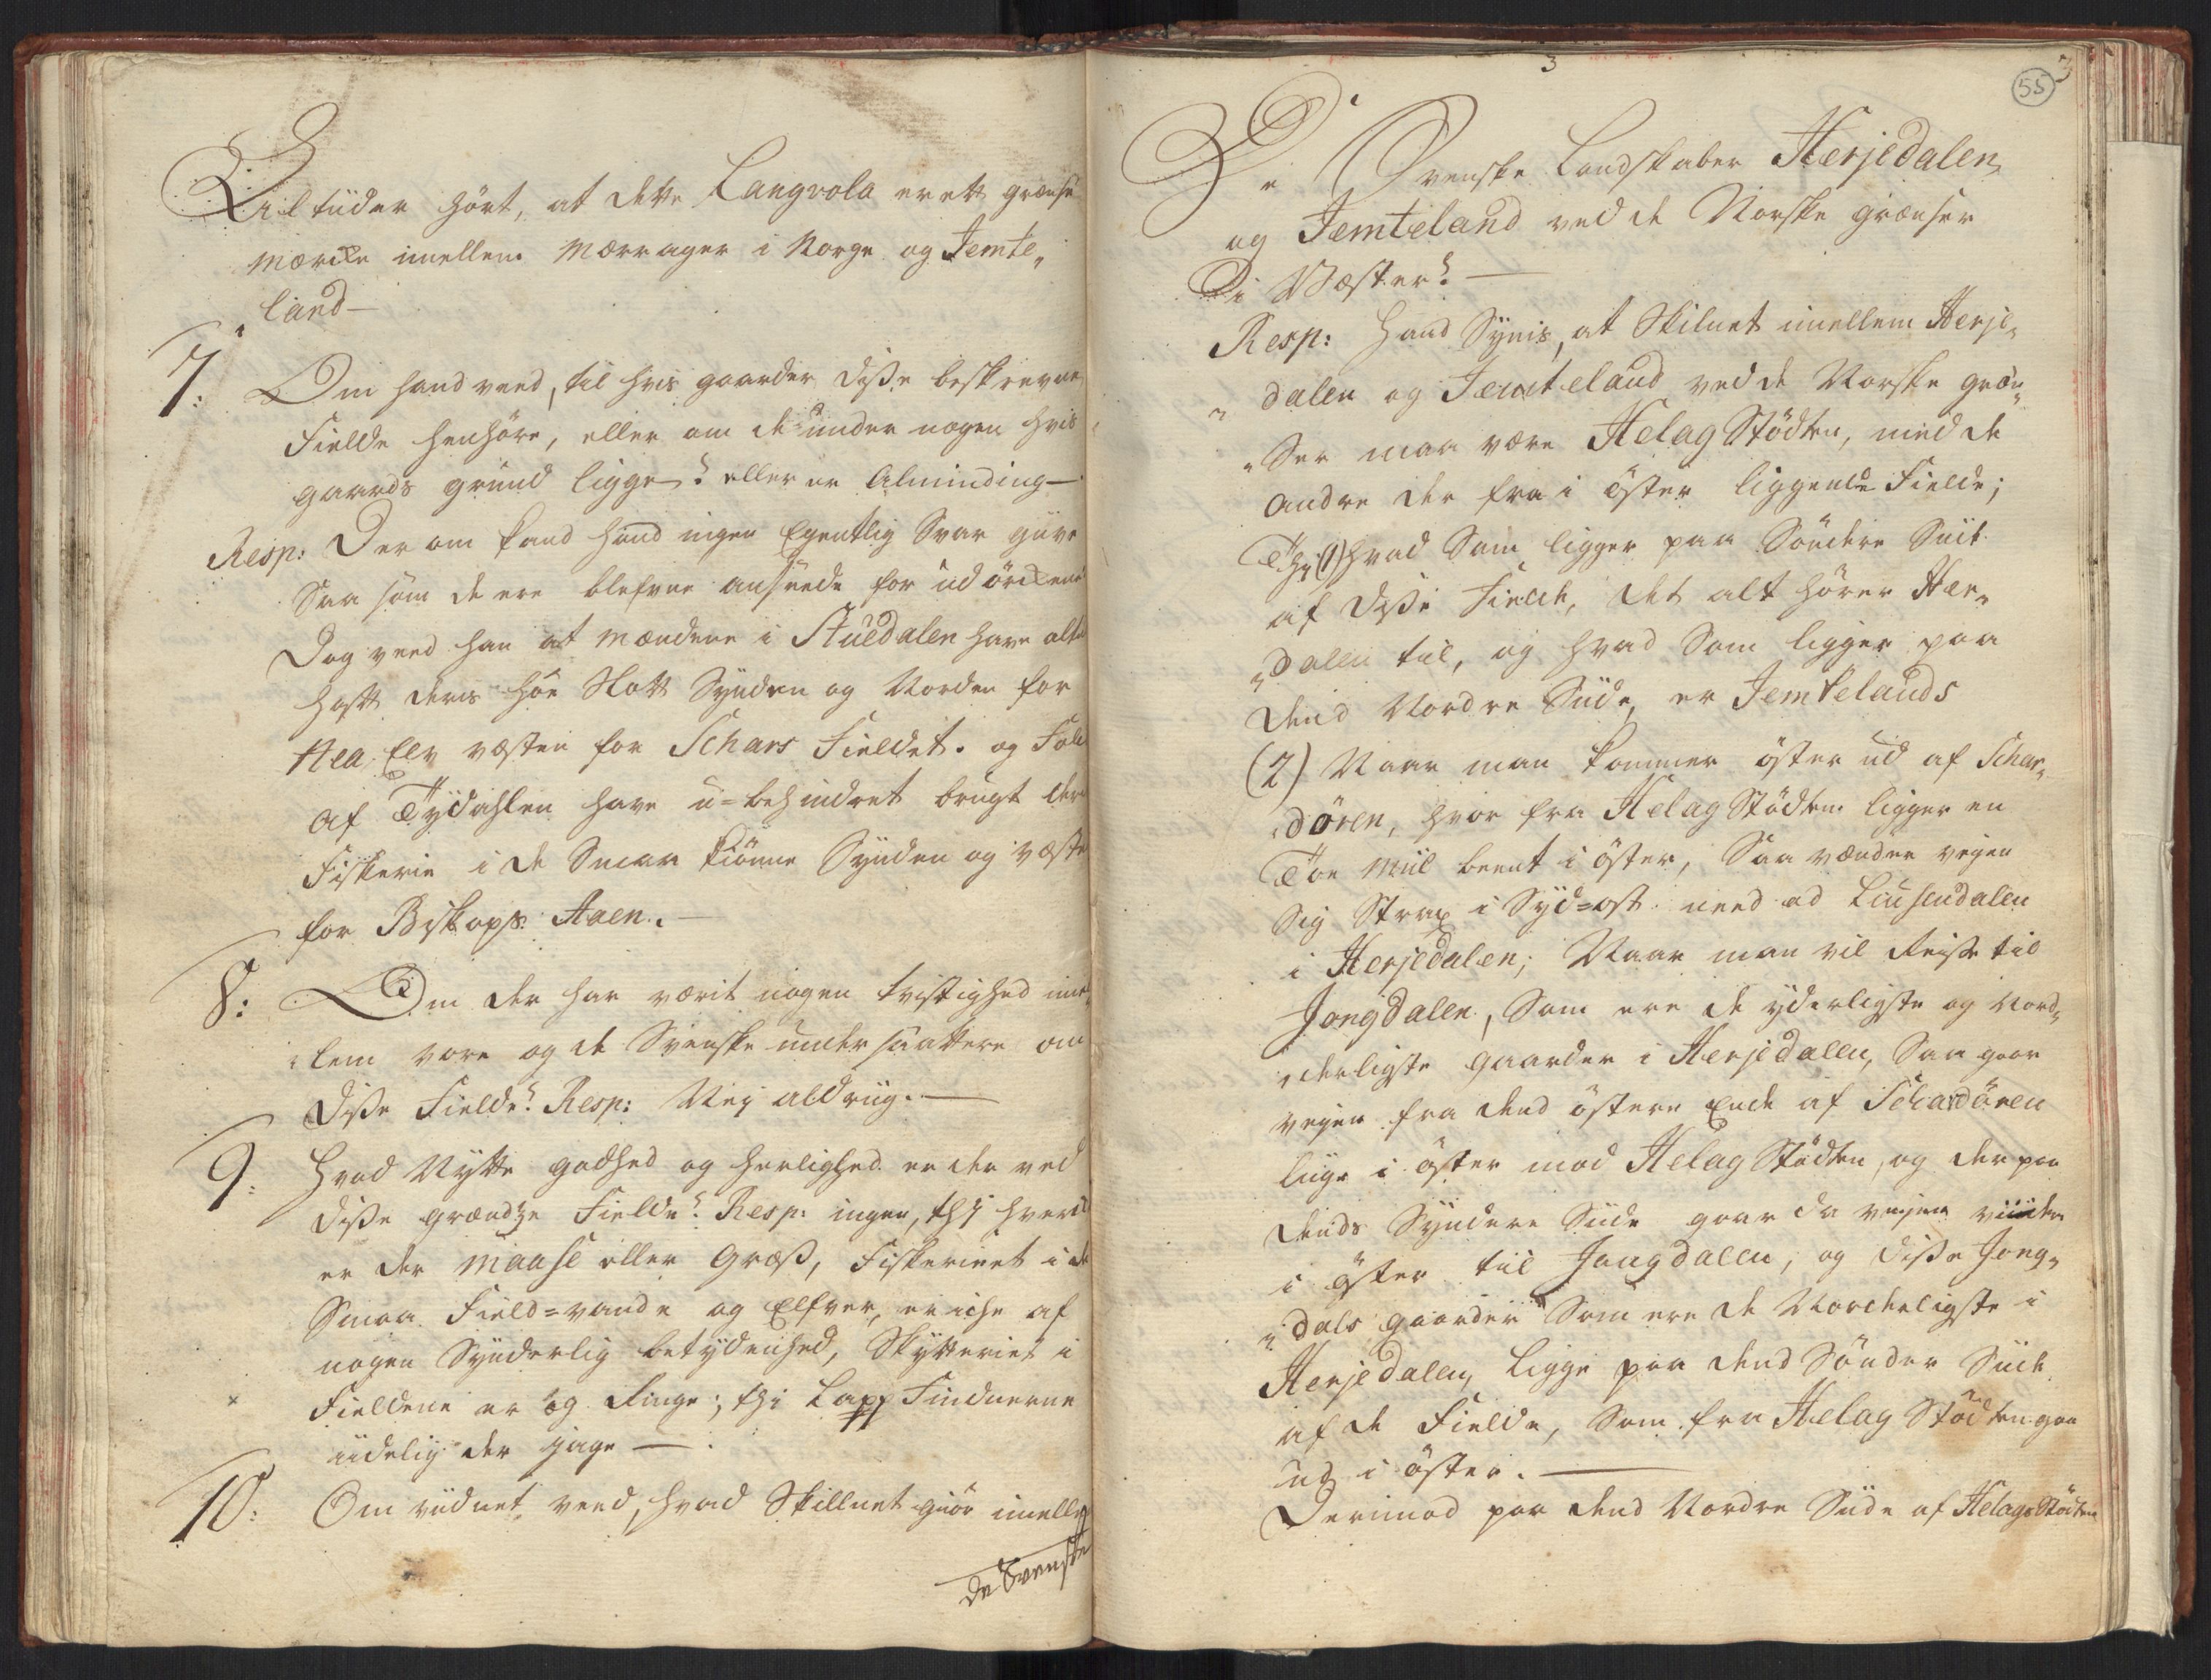 Altiider hört, at dette Langvola er ett grænse
mærcke imellem Mærrager i Norge og Jemte„
land —
7: Om hand veed, til hvis gaarder disse beskrevne
Fielde henhöre, eller om de under nogen hvis
gaards grund ligge? eller er Alminding —
Resp: Der om kand hand ingen Egentlig Svar give
Saa som de ere blefvne anseede for udörckener
Dog veed han at Mændene i Stuedalen have altid
hafft deris höe Slott Synden og Norden for
Nea Elv væsten for Schars Fieldet. og Folck
af Tydahlen have u=behindret brugt deris
Fiskerie i de Smaa kiönne Synden og væsten
for Biskops Aaen. —
8: Om der har værit nogen tvistighed imel„
„lem vore og de Svenske undersaattere om
disse Fielde? Resp: Nej aldrig. —
9: Hvad Nytte godhed og herlighed er der ved
disse grændze Fielde? Resp: ingen, thi hverck
er der maase eller Græss, Fiskeriet i de
Smaa Field=vande og Elfver, er iche af
nogen Synderlig betydenhed, Skytteriet i
Fieldene er og ringe; thi Lapp Findnerne
iidelig der jage —
10: Om viidnet veed, hvad Skillnet giör imellem
de Svenske
3
55
De Svenske Landskaber Herjedalen
og Jemteland ved de Norske grænser
i Væster? —
Resp: Hand Synis, at Skilnet imellem Herje„
„dalen og Jemteland ved de Norske græn„
„Ser maa være Helag Stödten, med de
andre der fra i öster liggende Fielde;
Thi (1) hvad Som ligger paa Söndere Siide
af disse Fielde, det alt hörer Her„
„dalen til, og hvad Som ligger paa
dend Nordre Siide, er Jemtelands
(2) Naar man kommer öster ud af Schar„
„dören, hvor fra Helag Stödten ligger en
Toe Miil beent i öster, Saa vænder vejen
Sig Strax i Syd=ost need ad Liusendalen
i Herjedalen; Naar man vil Reise til
Jongdalen, Som ere de yderligste og Nord„
„derligste gaarder i Herjedalen, Saa gaar
vejen fra dend östere Ende af Schardören
liige i öster mod Helag Stödten, og der paa
dends Syndere Siide gaar da vejen viider
i öster til Jongdalen, og disse Jong„
„dals gaarder Som ere de Nordeligste i
Herjedalen, ligge paa dend Sönder Siide
af de Fielde, Som fra Helag Stödten gaa
ud i öster. —
Derimod paa dend Nordre Siide af Helags Stödten